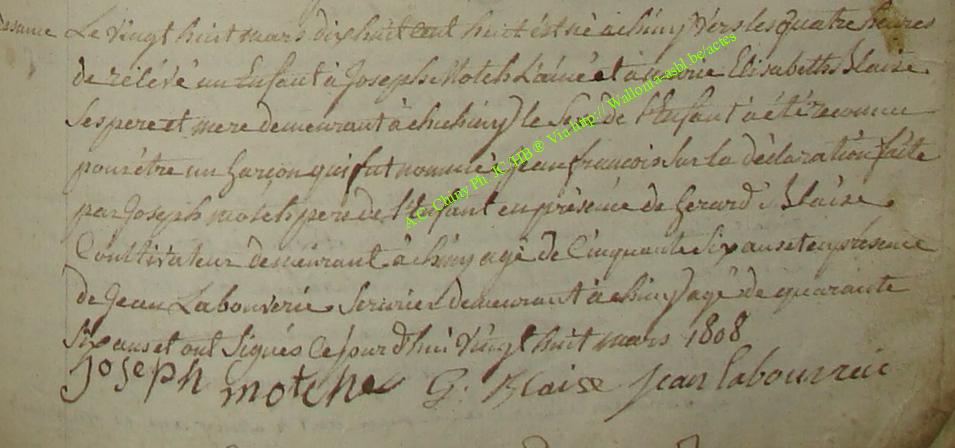 Le vingt huit mars dix huit cent huit est né à chiny vers les quatre heures
de rélévé un Enfant à Joseph Motch L'ainé et à marie Elisabeth Blaise
Ses pere et mere demeurant à chiny le Sexe de l'Enfant à été reconnu
pour être un garçon qui fut nommé jean francois sur la déclaration faite
par Joseph motch pere de l'Enfant en présence de Gerard Blaise
Coultivateur demeurant à chiny agé de Cinquante Six ans et en présence
de Jean Labouverie demeurant à chiny agé de quarante
Six ans et ont Signés Ce jour d'hui vingt huit mars 1808
joseph motche G. Blaise jean labouverie
A C Chiny Ph JC HB ® Via http:// Wallonia-asbl.be/actes